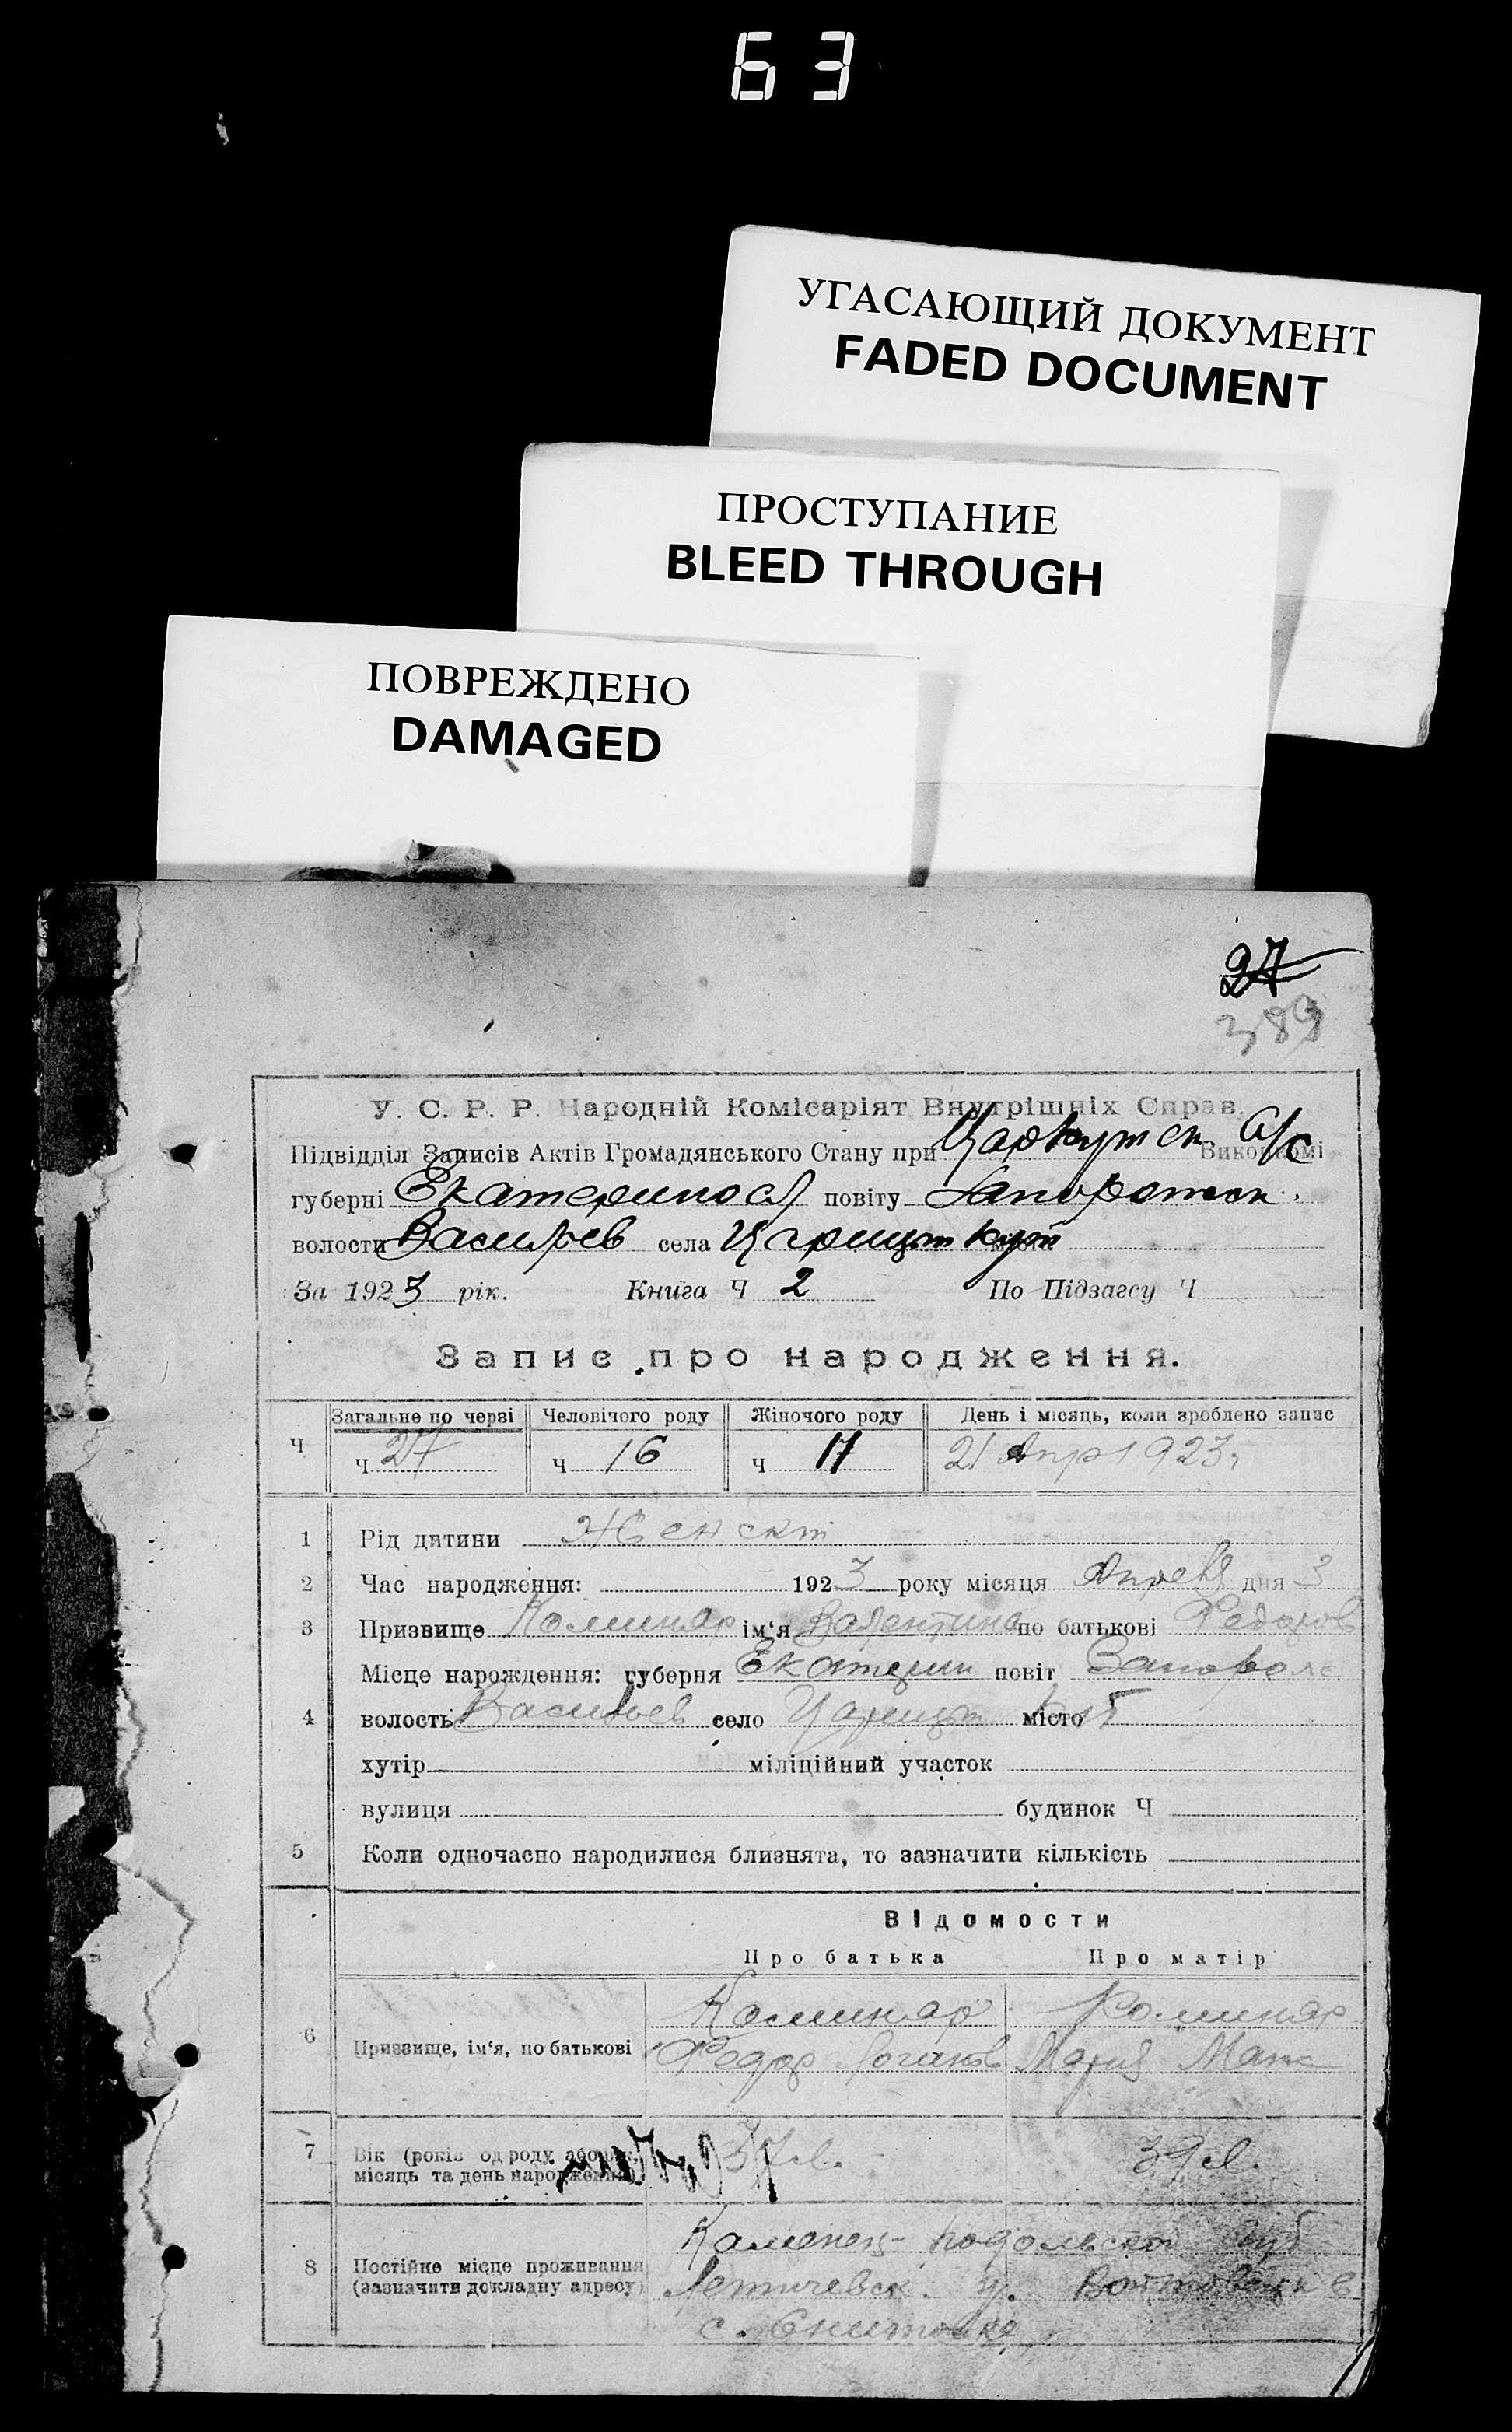 63
УГАСАЮЩИЙ ДОКУМЕНТ
FADED DOCUMENT
ПРОСТУПАНИЕ
BLEED THROUGH
ПОВРЕЖДЕНО
DAMAGED
27
389
У. С. Р. Р. Народній Комісаріят Внутрішніх Справ.
Підвідділ Записів Актів Громадянського Стану при Царкутск с/с
губерні Екатериносл повіту Запорожск
волости Васильев села Царицын Кут
За 1923 рік. Книга Ч 2 По Підзагсу Ч
Запис про народження.
Загальне по черзі Человічого роду Жіночого роду День і місяць, коли зроблено запис
Ч ч 27 ч 16 ч 11 21 Апр 1923
1 Рід дитини Женск
2 Час народження: 1923 року місяця Апреля дня 3
3 Призвище Коминяр ім‘я Валентина по батькові Федоров
Місце народження: губерня Екатерин повіт Запорож
4 волость Васильев село Царицын Кут місто
хутір міліційний участок
вулиця будинок Ч
5 Коли одночасно народилися близнята, то зазначити кількість
Відомости
Про батька Про матір
Коминяр Коминяр
6 Призвище, ім‘я, по батькові Федор Мария
7 Вік (років од роду або рік, 37 л. 39 л.
місяць та день народження)
Каменец-Подольской губ
8 Постійне місце проживання
(зазначити докладну адресу) Летичевск. у.
с. Снитовке